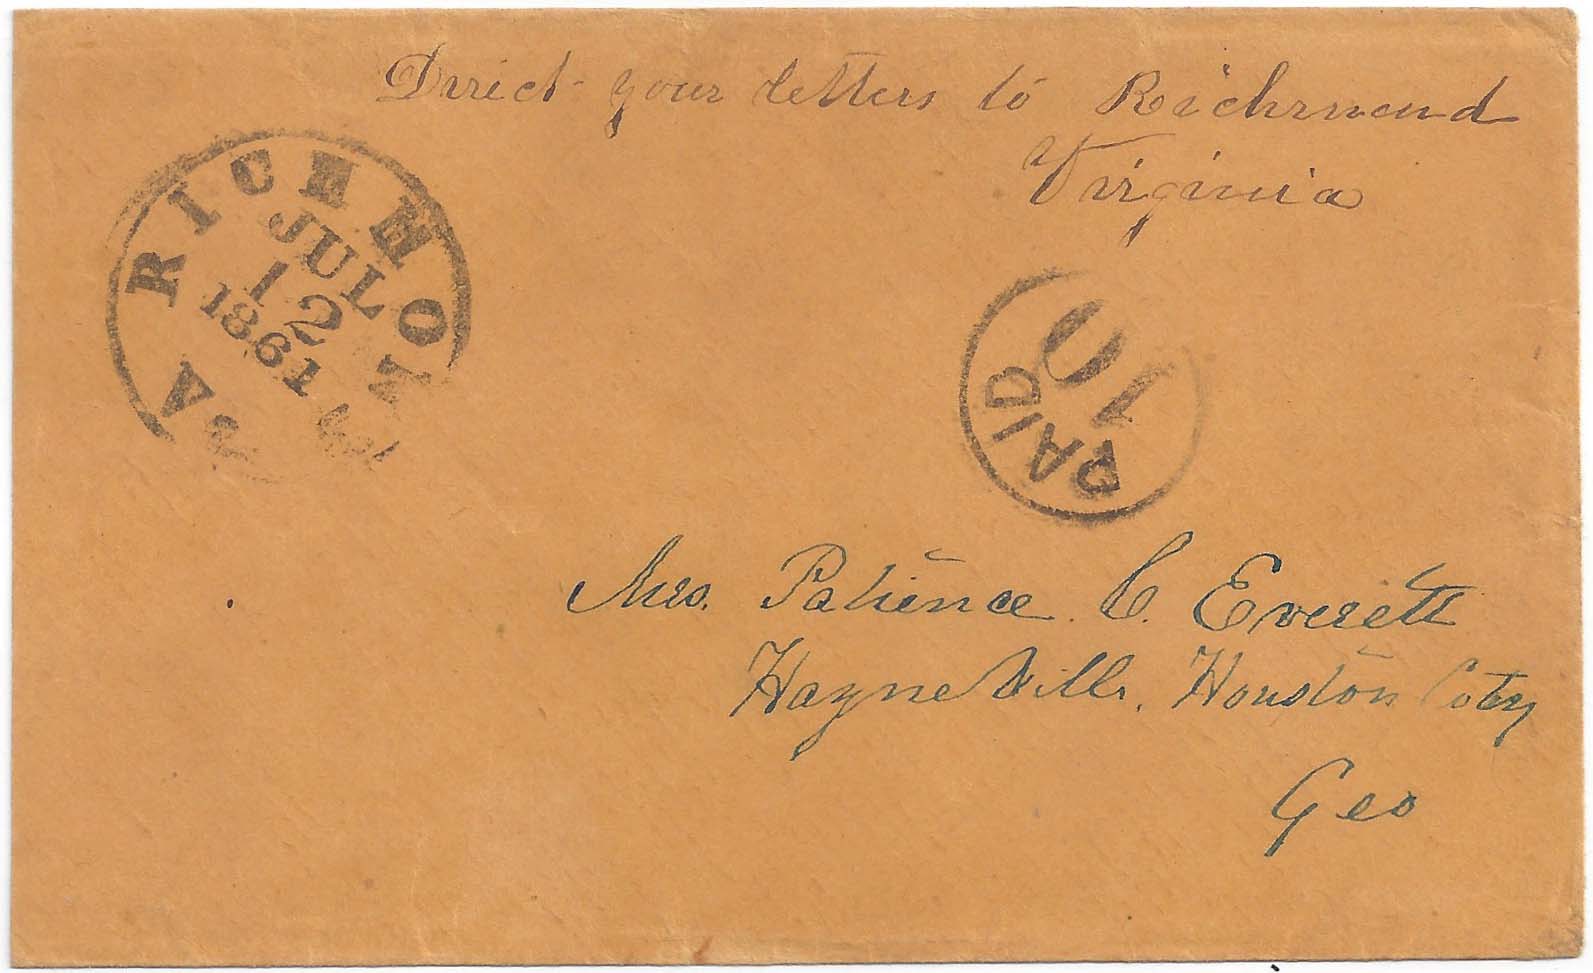 Dirict your letters to Richmond
Virginia
RICHMOND
VA
JUL
12
1861
PAID
10
Mrs. Patience C. Everett
HayneVille, Houston Coty
Geo